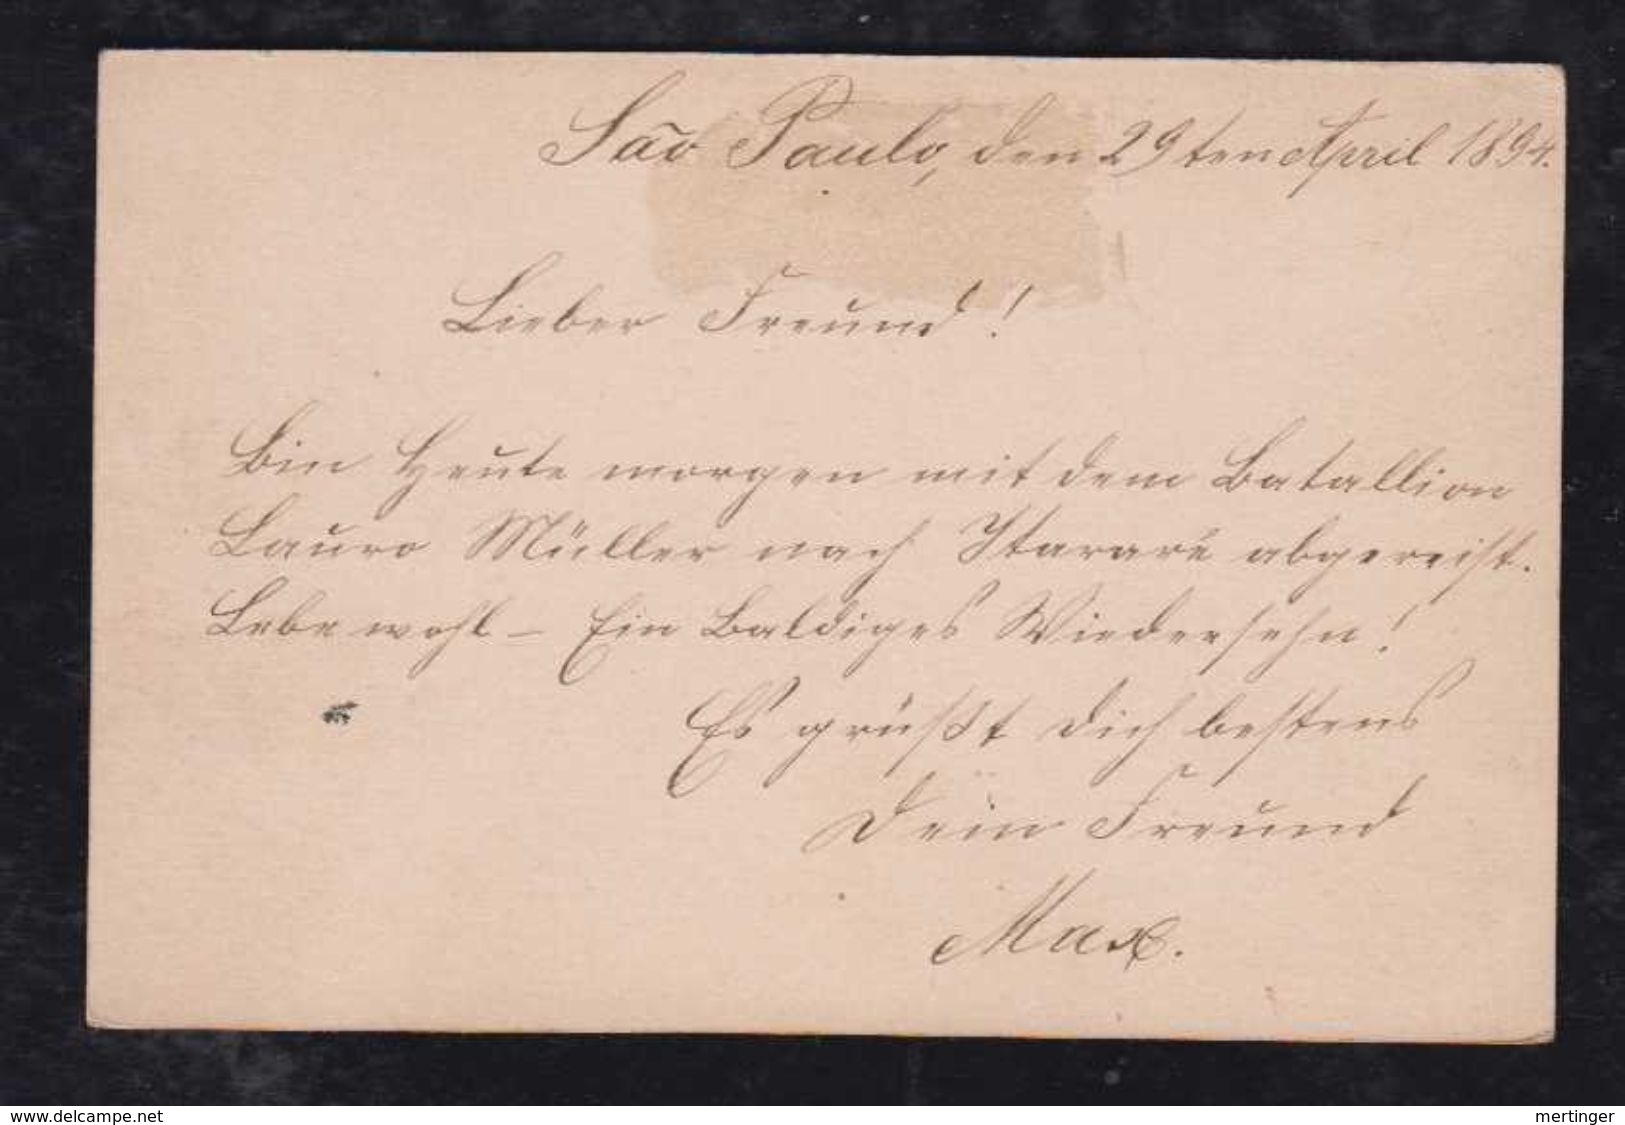 São Paulo, den 29ten April 1894.
Lieber Freund!
Bin Heute morgen mit dem Batallion
Lauro Müller nach Itararé abgereist.
Lebe wohl – Ein Baldiges Wiedersehn!
Es grüßt Dich bestens
Dein Freund
Max.
www.delcampe.net
mertinger